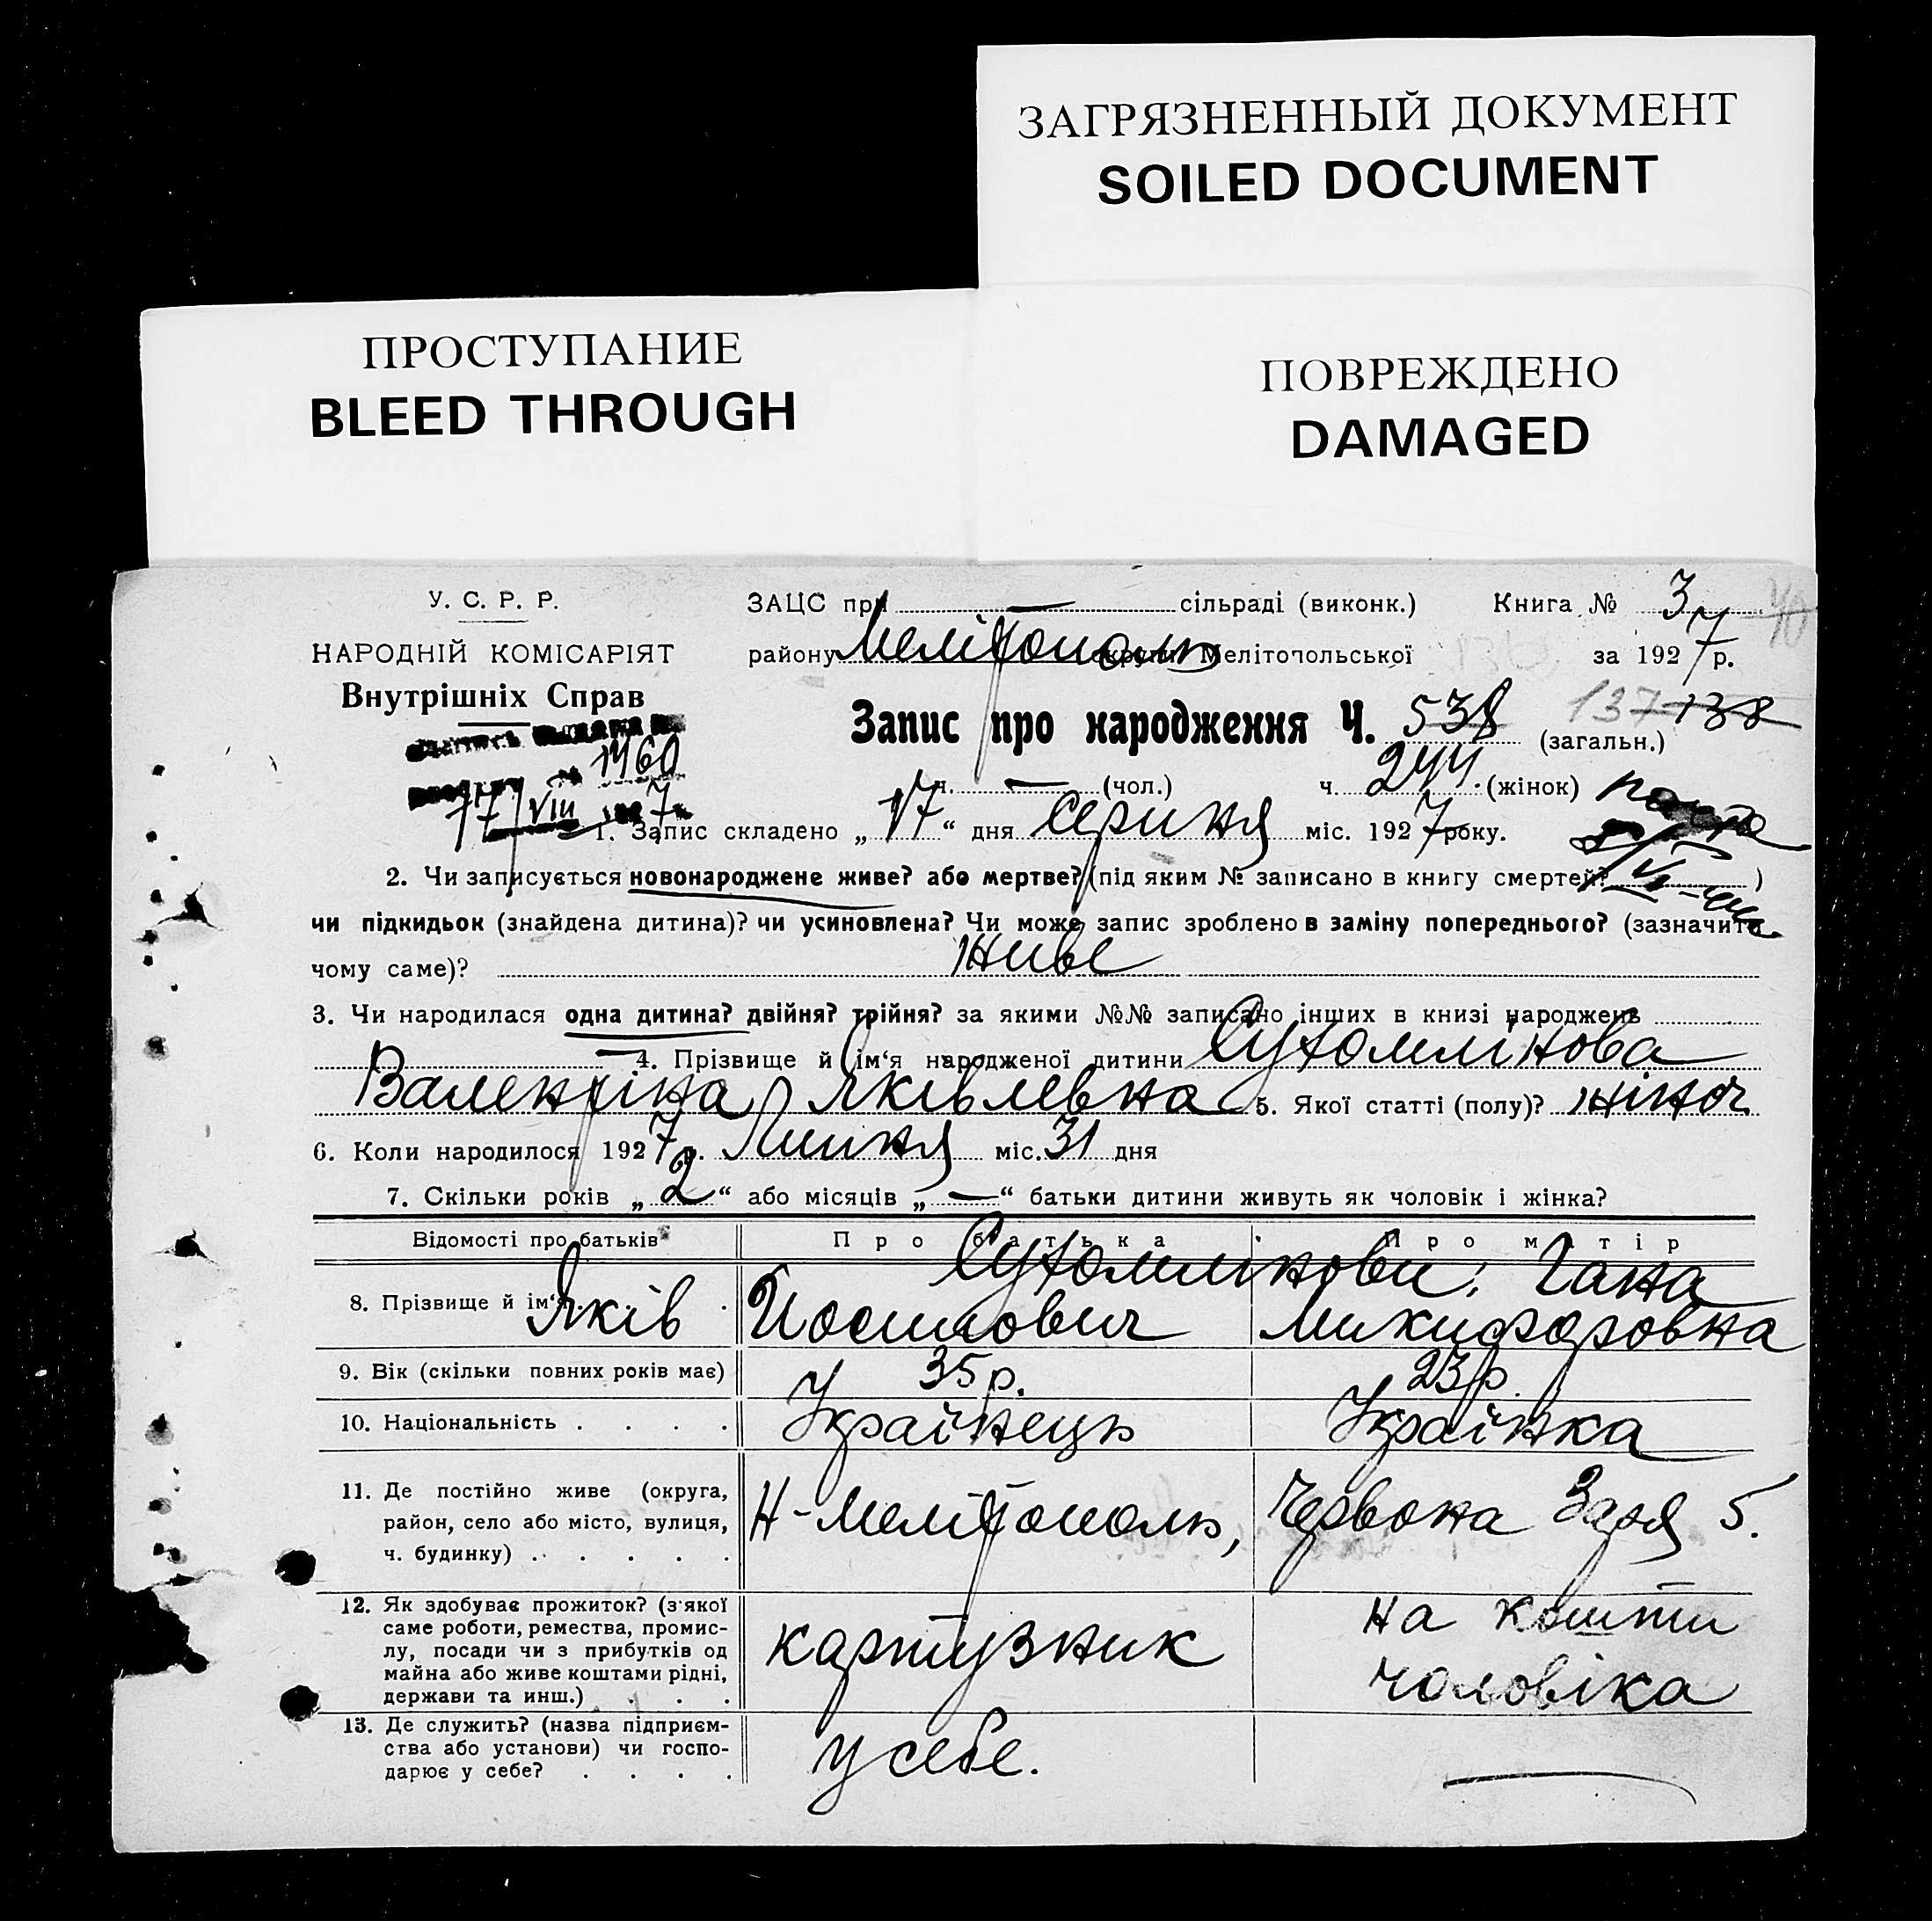 ЗАГРЯЗНЕННЫЙ ДОКУМЕНТ
SOILED DOCUMENT
ПРОСТУПАНИЕ
BLEED THROUGH
ПОВРЕЖДЕНО
DAMAGED
У. С. Р. Р.
НАРОДНІЙ КОМІСАРІЯТ
Внутрішніх Справ
1460
17/VIII 7
ЗАЦС при — сільраді (виконк.) Книга № 3
40
району Мелітополь округи Мелітопольської за 1927 р.
Запис про народження Ч. 538 (загальн.) 137 138
ч. — (чол.) ч. 244 (жінок)
1. Запис складено „ 17 “ дня Серпня міс. 1927 року.
2. Чи записується новонароджене живе? або мертве? (під яким № записано в книгу смертей? )
чи підкидьок (знайдена дитина)? чи усиновлена? Чи може запис зроблено в заміну попереднього? (зазначити
чому саме)? живе
3. Чи народилася одна дитина? двійня? трійня? за якими №№ записано інших в книзі народжень
— 4. Прізвище й ім‘я народженої дитини Сухомлінова
Валентіна Яківлевна 5. Якої статті (полу)? жіноч
6. Коли народилося 1927 р. Липня міс. 31 дня
7. Скільки років „ 2 “ або місяців „ — “ батьки дитини живуть як чоловік і жінка?
Відомості про батьків Про батька Про матір
Сухомлінови: Гана
8. Прізвище й ім‘я Яків Йосипович Микифоровна
9. Вік (скільки повних років має) 35 р. 23 р.
10. Національність . . . . Українець Українка
11. Де постійно живе (округа,
район, село або місто, вулиця,
ч. будинку) . . . . .
Н-Мелітополь, Червона Заря 5.
12. Як здобуває прожиток? (з‘якої
саме роботи, ремества, промис-
лу, посади чи з прибутків од
майна або живе коштами рідні,
держави та инш.) . . .
картузник
на кошти
чоловіка
13. Де служить? (назва підприєм-
ства або установи) чи госпо-
дарює у себе? . . . .
у себе. —